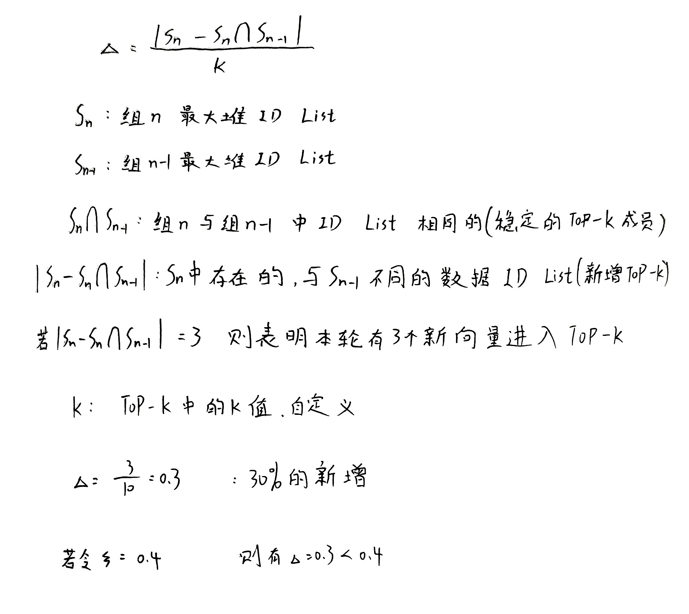 Δ = |Sn - Sn∩Sn-1| / k
Sn : 组n 最大堆 ID List
Sn-1 : 组n-1 最大堆 ID List
Sn∩Sn-1 : 组n 与组n-1 中 ID List 相同的(稳定的Top-k成员)
|Sn-Sn∩Sn-1| : Sn中存在的,与Sn-1不同的数据 ID List(新增Top-k)
若|Sn-Sn∩Sn-1| = 3 则表明本轮有3个新向量进入 Top-k
k: Top-k中的k值,自定义
Δ = 3/10 = 0.3 : 30%的新增
若令 ξ = 0.4 则有 Δ=0.3 < 0.4